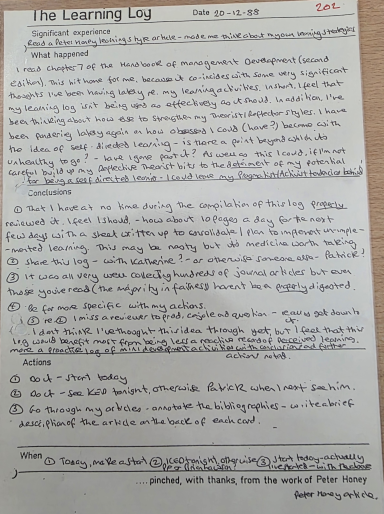 The Learning Log Date 20-12-88 202
Significant experience
Read a Peter Honey learning style article - made me think about my own learning strategies
What happened
I read Chapter 7 of the Handbook of management Development (second
edition). This hit home for me, because it co-incides with some very significant
thoughts I've been having lately re. my learning activities. In short, I feel that
my learning log isn't being used as effectively as it should. In addition, I've
been thinking about how else to strengthen my Theorist/Reflector styles. I have
been pondering lately again on how obsessed I could (have?) become with
the idea of self-directed learning - is there a point beyond which it's
unhealthy to go? - have I gone past it? As well as this I could, if I'm not
careful build up my Reflective Theorist bits to the detriment of my potential
for being a self directed learner - I could leave my Pragnatist/Activist tendencies behind
Conclusions
① That I have at no time during the compilation of this log properly
reviewed it. I feel I should - how about 10 pages a day for the next
few days with a sheet written up to consolidate I plan to implement un-imple-
-mented learning. This may be nasty but do medicine worth taking
② Share this log - with Katherine? - or otherwise someone else - Patrick?
③ It was all very well collecting hundreds of journal articles but even
those you've read (the majority in fairness) haven't been properly digested.
④ Be for more specific with my actions.
⑤ re ② I miss a reviewer to prod, cajole and question - easy to get down to it.
I don't think I've thought this idea through yet, but I feel that this
log would benefit most from being less a reactive record of perceived learning,
more a proactive log of mini development activities with conclusions and further
actions noted.
Actions
① Do it - start today
② Do it - see tonight, otherwise Patrick when I next see him.
③ Go through my articles - annotate the bibliographies - write a brief
description of the article on the back of each card.
When ① Today, make a start ② tonight, otherwise ③ Start today - actually
.... pinched, with thanks, from the work of Peter Honey
Peter Honey article.